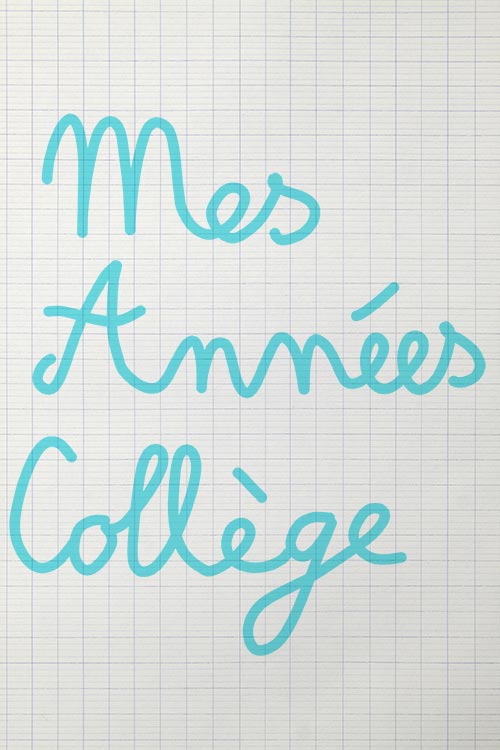 Mes
Années
Collège